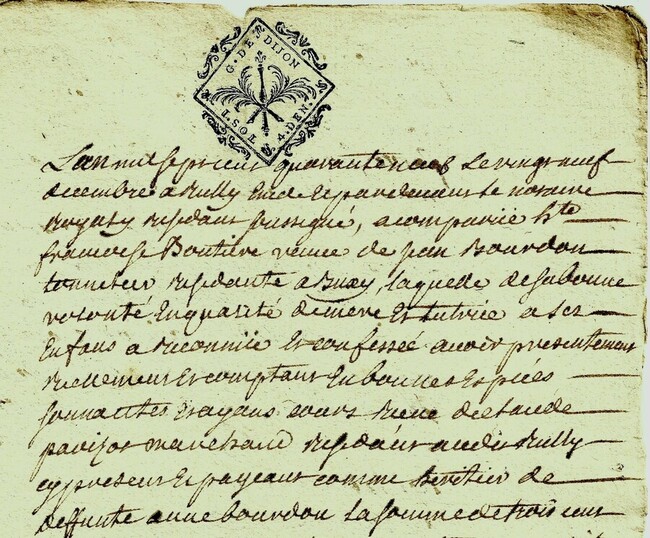 G. DE DIJON
1. SOL 4. DEN.
L'an mil sept cent quarante neuf Le vingt neuf
decembre a Rully Etude et pardevant le notaire
Royal residant soussigné, a comparüe h.te
francoise Boutiere veuve de jean Bourdon
tonnelier residante a Buxy, laquelle de sa bonne
volonté En qualité de mere Et tutrice a ses
Enfans a reconnüe Et confessé avoir presentement
reellement Et comptant En bonnes Espéces
sonnantes Et ayans cours Receu de claude
parizot marchand residant audit Rully
cy present Et payant comme heritier de
deffunte anne bourdon La somme de trois cent